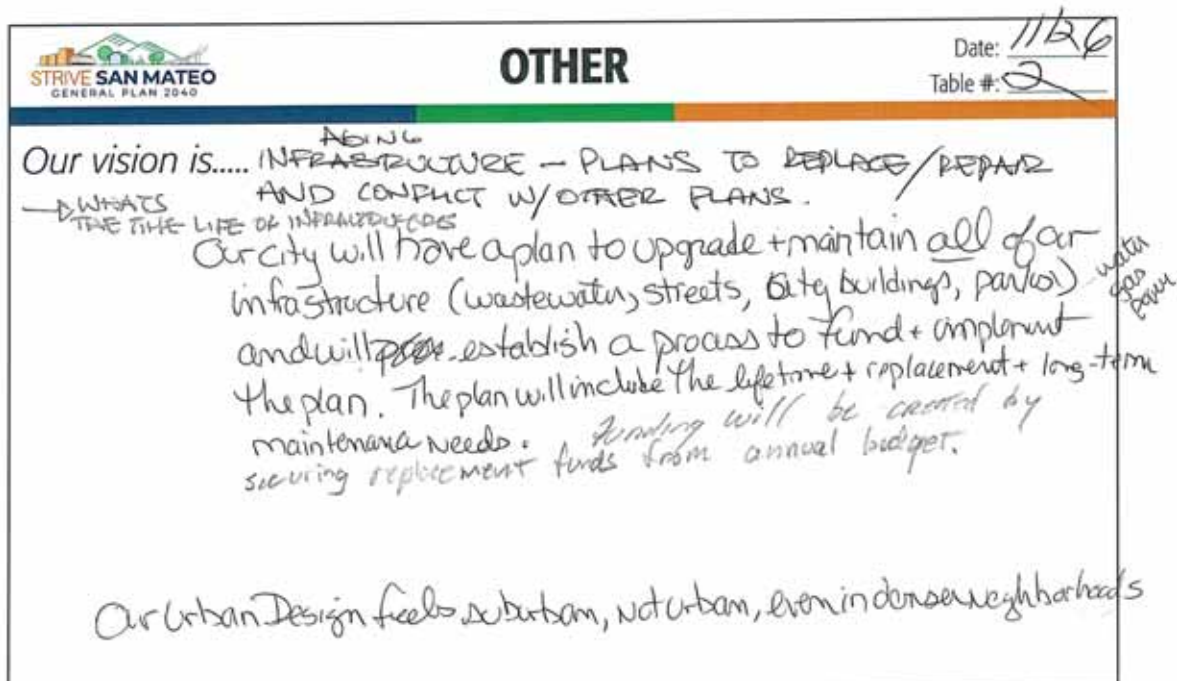 STRIVE SAN MATEO
GENERAL PLAN 2040
OTHER
Date: 11/26
Table #: 2
AGING
Our vision is..... INFRASTRUCTURE – PLANS TO REPLACE/REPAIR
AND CONFLICT W/OTHER PLANS.
→ WHATS
THE TIME LIFE OF
Our city will have a plan to upgrade + maintain all of our
infrastructure (wastewater, streets, city buildings, parks)
water
gas
and will establish a process to fund + implement
the plan. The plan will include the lifetime + replacement + long-term
maintenance needs. Funding will be created by
securing replacement funds from annual budget.
Our Urban Design feels suburban, not urban, even in denser neighborhoods